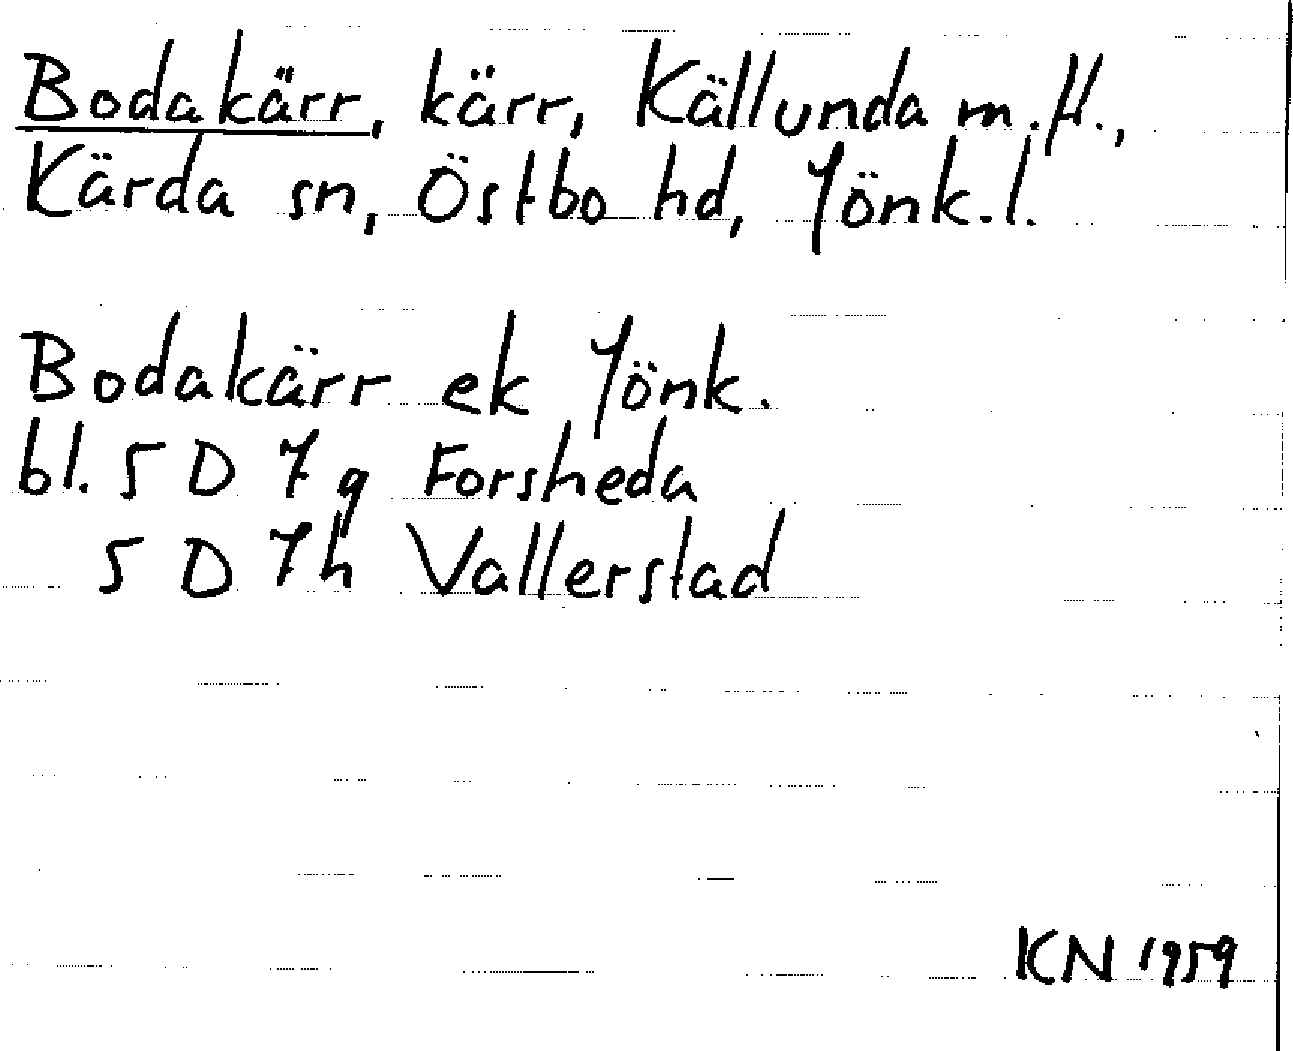 Bodakärr, kärr, Källunda m.fl.,
Kärda sn, Östbo hd, Jönk.l.
Bodakärr ek Jönk.
bl. 5 D 7 g Forsheda
5 D 7 h Vallerstad
KN 1959